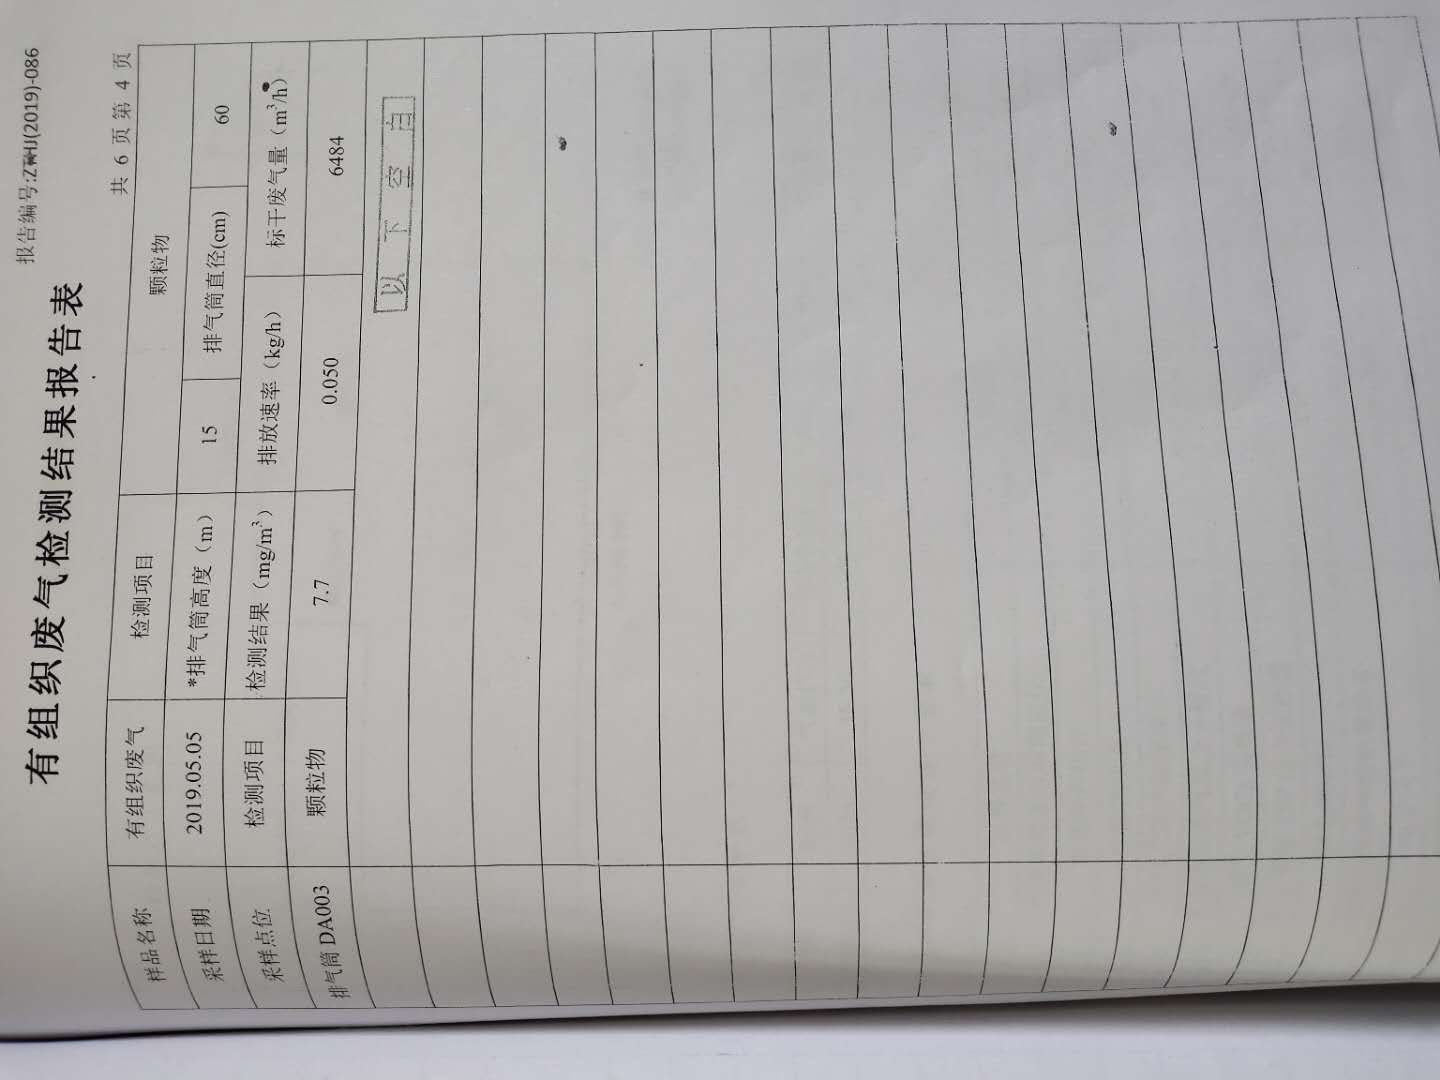 报告编号:ZWHJ(2019)-086
有组织废气检测结果报告表
共 6 页 第 4 页
样品名称 有组织废气 检测项目 颗粒物
采样日期 2019.05.05 *排气筒高度（m） 15 排气筒直径(cm) 60
采样点位 检测项目 检测结果（mg/m³） 排放速率（kg/h） 标干废气量（m³/h）
排气筒 DA003 颗粒物 7.7 0.050 6484
以下空白